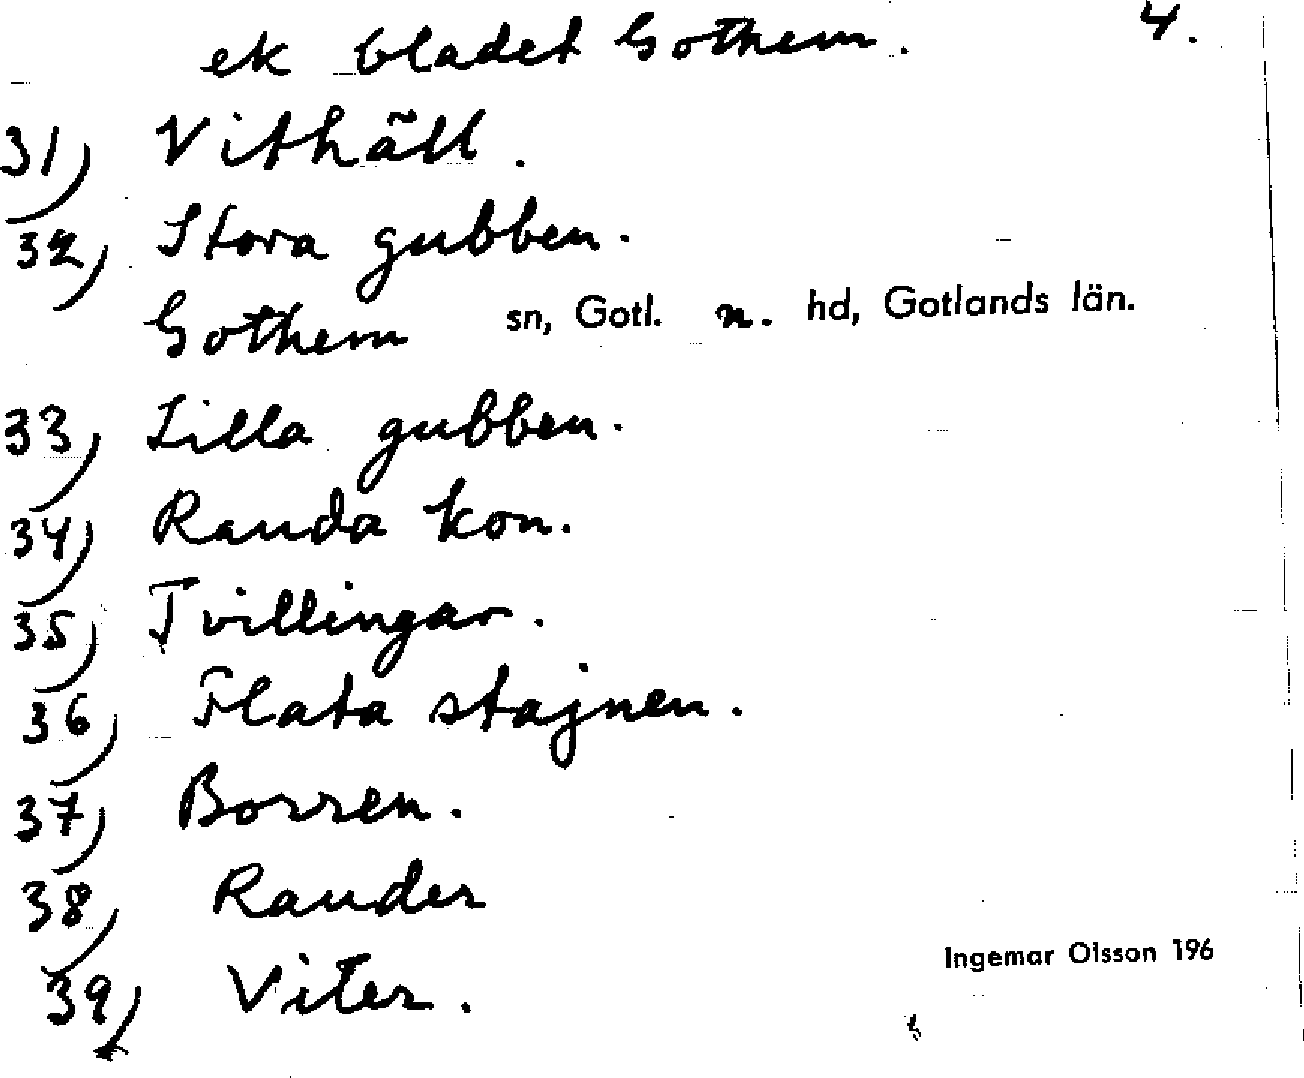 ek bladet Gothem. 4.
31) Vithäll.
32) Stora gubben.
Gothem sn, Gotl. n. hd, Gotlands län.
33) Lilla gubben.
34) Rauda kon.
35) Tvillingar.
36) Flata stajnen.
37) Borren.
38) Rauder
39) Viter.
Ingemar Olsson 196